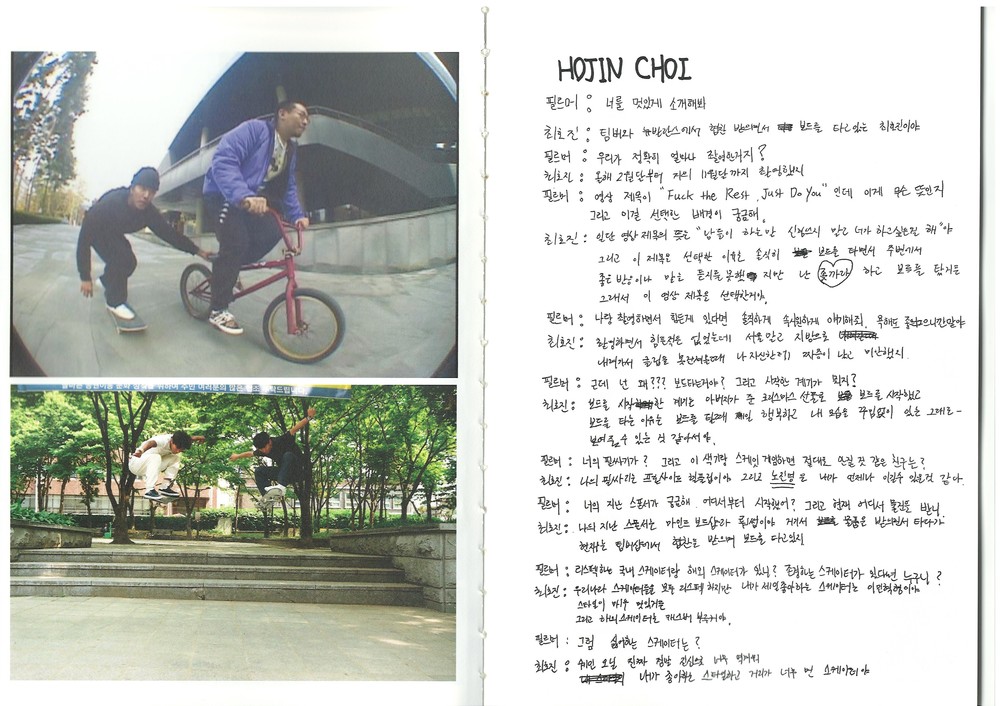 HOJIN CHOI
필르머 : 너를 멋있게 소개해봐
최호진 : 팀버와 뉴발란스에서 협찬 받으면서 보드를 타고있는 최호진이야
필르머 : 우리가 정확히 얼마나 촬영한거지?
최호진 : 올해 2월달부터 11월달까지 촬영했지
필르머 : 영상 제목이 "Fuck the Rest, Just Do You" 인데 이게 무슨 뜻인지
그리고 이걸 선택한 배경이 궁금해.
최호진 : 일단 영상 제목의 뜻은 "남들이 하는말 신경쓰지 말고 너가 하고싶은걸 해"야
그리고 이 제목을 선택한 이유는 솔직히 보드를 타면서 주변에서
좋은 반응이나 말을 듣지를 못했지만 난 좆까라 하고 보드를 탔거든
그래서 이 영상 제목을 선택한거야.
필르머 : 나랑 촬영하면서 힘든게 있다면 솔직하게 속시원하게 이야기해줘. 욕해도
최호진 : 촬영하면서 힘든점은 없었는데 서울말고 지방으로
내려가서 클립을 못건져올때 나 자신한테 짜증이 나고 미안했지.
필르머 : 근데 넌 왜??? 보드타는거야? 그리고 시작한 계기가 뭐지?
최호진 : 보드를 시작한 계기는 아버지가 준 크리스마스 선물로 보드를 시작했고
보드를 타는 이유는 보드를 탈때 제일 행복하고 내 모습을 꾸밈없이 있는 그대로-
보여줄 수 있는 것 같아서야.
필르머 : 너의 필살기가? 그리고 이 새끼랑 스케잇 게임하면 절대로 안질 것 같은 친구는?
최호진 : 나의 필살기는 그리고 노진영은 내가 언제나 이길수 있을것 같아.
필르머 : 너의 지난 스폰서가 궁금해. 어디서부터 시작했어? 그리고 현재 어디서 물건을 받니.
최호진 : 나의 지난 스폰서는 마인드 보드샵과 거기서 물품을 받으면서 타다가
현재는 팀버샵에서 협찬을 받으며 보드를 타고있지
필르머 : 리스펙하는 국내 스케이터랑 해외 스케이터가 있니? 존경하는 스케이터가 있다면 누구니?
최호진 : 우리나라 스케이터들을 모두 리스펙 하지만 내가 제일좋아하는 스케이터는 이민혁형이야
스타일이 아주 멋있거든
그리고 해외스케이터는 케스퍼 부루커야.
필르머 : 그럼 싫어하는 스케이터는?
최호진 : 쉐인 오닐 진짜 정말 진심으로 너무
내가 좋아하는 스타일하고 거리가 너무 먼 스케이터야